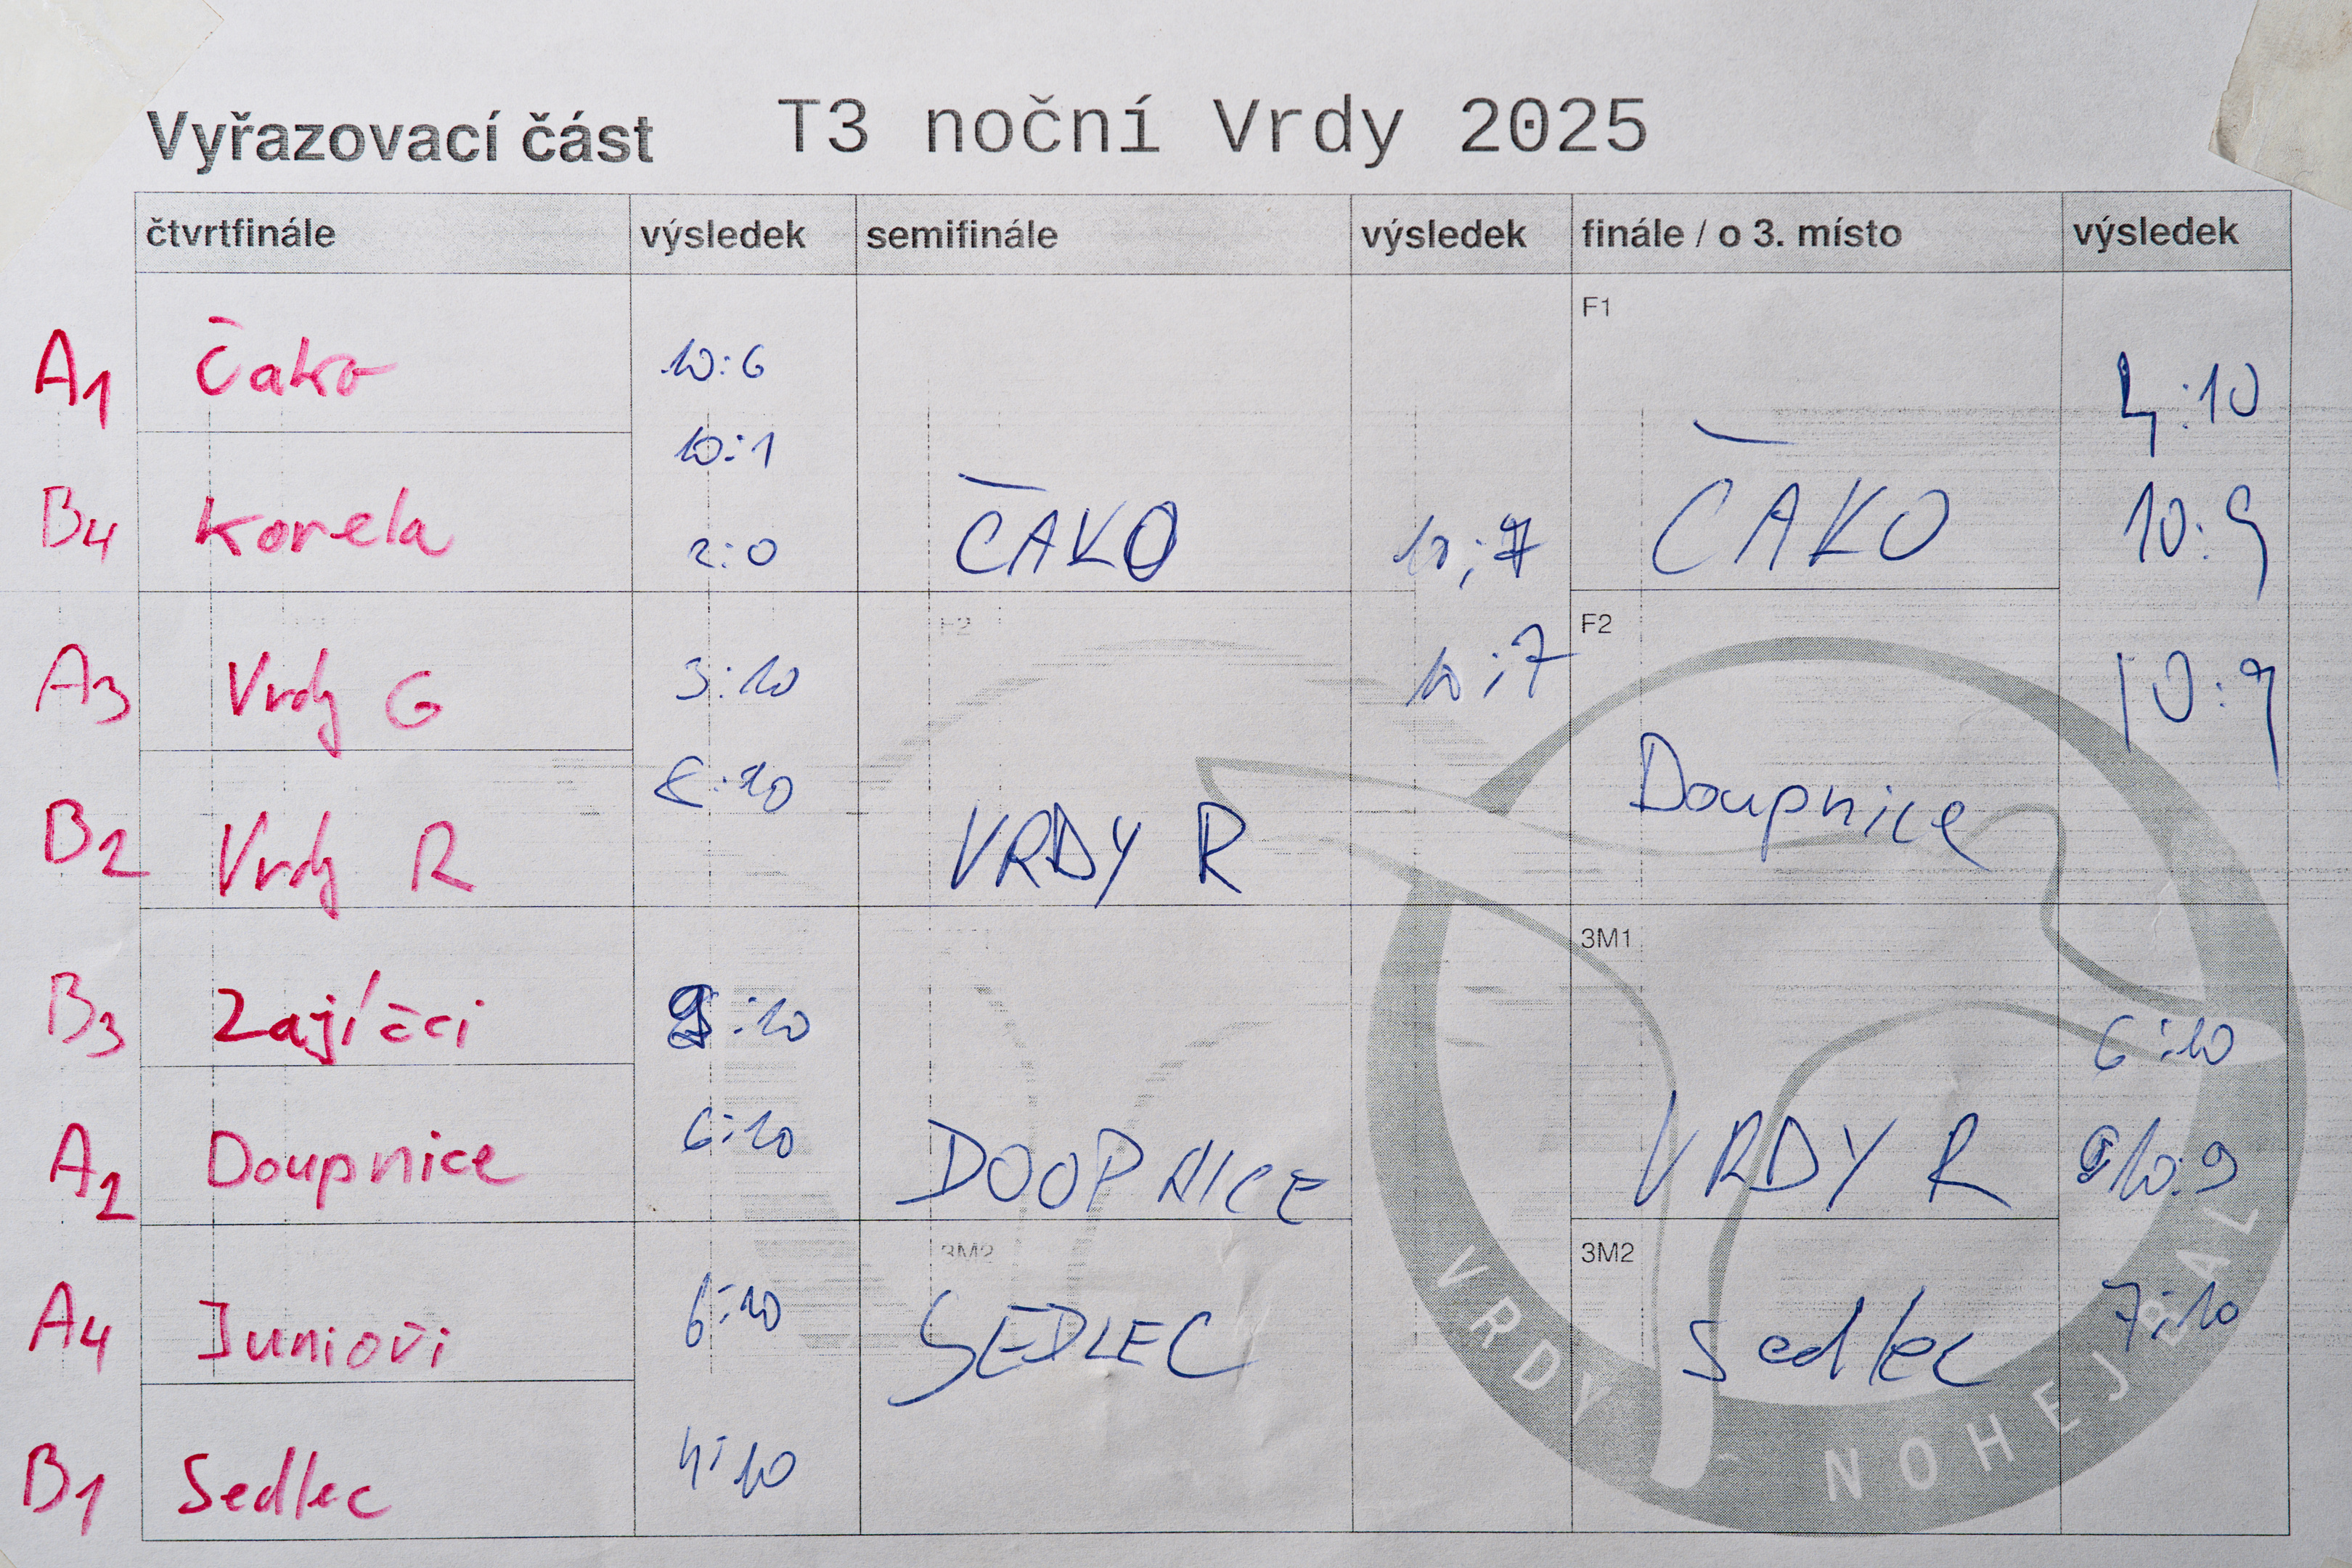 Vyřazovací část T3 noční Vrdy 2025
čtvrtfinále výsledek semifinále výsledek finále / o 3. místo výsledek
F1
A1 Čako 10:6
4:10
10:1
B4 Korela 2:0 ČAKO 10:7 ČAKO 10:9
F2
A3 Vrdy G 3:10 10:7 10:9
8:10 Doupnice
B2 Vrdy R VRDY R
3M1
B3 Zajíčci 9:10 6:10
A2 Doupnice 6:10 DOOPNICE VRDY R 10:9
3M2
A4 Junioři 6:10 SEDLEC Sedlec 7:10
B1 Sedlec 4:10
VRDY - NOHEJBAL